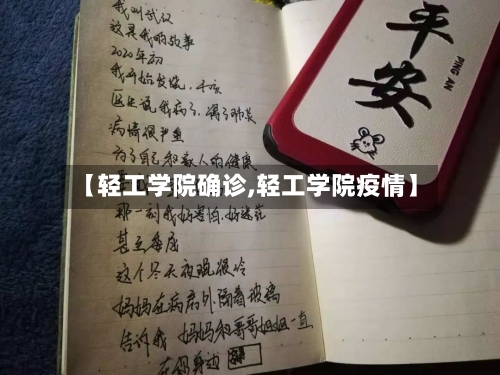 我叫武汉
这是我的故事
2020年初
我开始发烧，干咳
医生说我病了，得了肺炎
病情很严重
为了自己和家人的健康
【轻工学院确诊,轻工学院疫情】
那一刻我好害怕，好迷茫
甚至委屈
这个冬天夜晚很冷
妈妈在病房外隔着玻璃
告诉我 妈妈和哥哥姐姐一直
在你身边
平安
PING AN